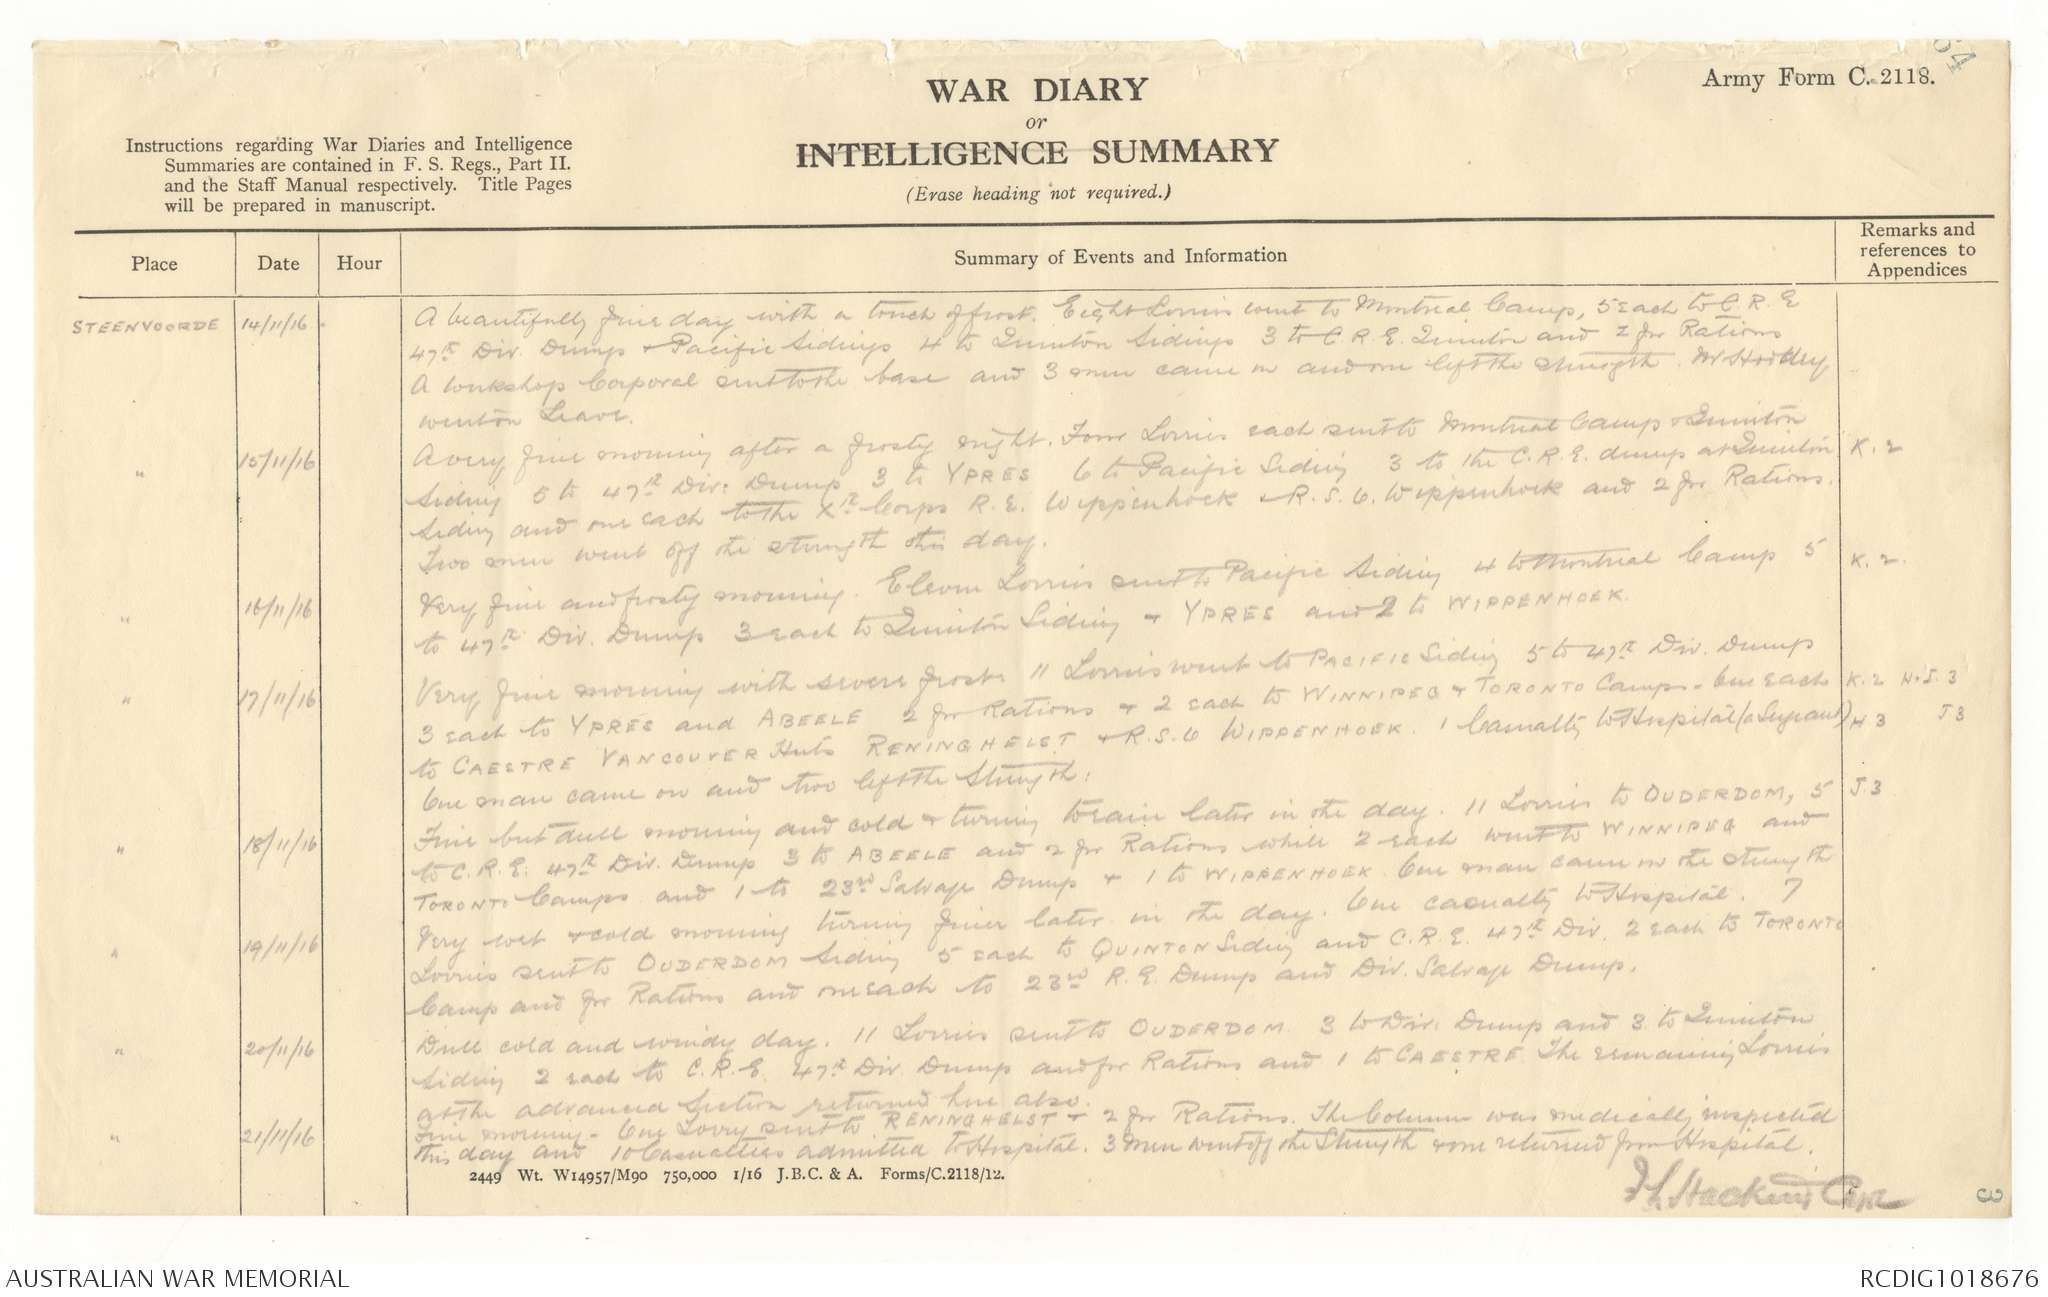 64
Army Form C. 2118.
WAR DIARY
or
INTELLIGENCE SUMMARY
(Erase heading not required.)
Instructions regarding War Diaries and Intelligence
Summaries are contained in F. S. Regs., Part II.
and the Staff Manual respectively. Title Pages
will be prepared in manuscript.
Place
Date
Hour
Summary of Events and Information
Remarks and
references to
Appendices
STEENVOORDE 14/11/16 A beautifully fine day with a touch of frost. Eight Lorries went to Montreal Camp, 5 each to C.R.E
47th Div. Dump & Pacific Sidings 4 to Quinton Sidings 3 to C.R.E. Quinton and 2 for Rations
A workshop Corporal sent to the base and 3 men came on and one left the strength. Mr
went on Leave.
" 15/11/16 A very fine morning after a frosty night. Four Lorries each sent to Montreal Camp & Quinton K.2
Siding 5 to 47th Div. Dump 3 to YPRES 6 to Pacific Siding 3 to the C.R.E. dump at Quinton
Siding and one each to the Xth Corps R.E. Wippenhoek & R.S.O. Wippenhoek and 2 for Rations.
Two men went off the strength this day.
" 16/11/16 Very fine and frosty morning. Eleven Lorries sent to Pacific Siding 4 to Montreal Camp 5 K.2.
to 47th Div. Dump 3 each to Quinton Siding & YPRES and 2 to WIPPENHOEK.
" 17/11/16 Very fine morning with severe frost 11 Lorries went to PACIFIC Siding 5 to 47th Div. Dump
3 each to YPRES and ABEELE 2 for Rations & 2 each to WINNIPEG & TORONTO Camps. One each K.2 H.S.3
to CAESTRE VANCOUVER Huts RENINGHELST & R.S.O WIPPENHOEK. 1 Casualty to Hospital (a Sergeant) H3 J3
One man came on and two left the Strength.
" 18/11/16 Fine but dull morning and cold & turning to rain later in the day. 11 Lorries to OUDERDOM, 5 J.3
to C.R.E. 47th Div. Dump 3 to ABEELE and 2 for Rations while 2 each went to WINNIPEG and
TORONTO Camps and 1 to 23rd Salvage Dump & 1 to WIPPENHOEK. One man came on the strength
" 19/11/16 Very wet & cold morning turning finer later in the day. One casualty to Hospital. 7
Lorries sent to OUDERDOM Siding 5 each to QUINTON Siding and C.R.E. 47th Div. 2 each to TORONTO
Camp and for Rations and one each to 23rd R.E. Dump and Div. Salvage Dump.
" 20/11/16 Dull cold and windy day. 11 Lorries sent to OUDERDOM 3 to Div. Dump and 3 to Quinton
Siding 2 each to C.R.E. 47th Div Dump and for Rations and 1 to CAESTRE. The remaining Lorries
at the advanced Section returned here also.
" 21/11/16 Fine morning. One Lorry sent to RENINGHELST & 2 for Rations. The Column was medically inspected
this day and 10 Casualties admitted to Hospital. 3 Men went off the Strength & one returned from Hospital.
2449 Wt. W14957/M90 750,000 1/16 J.B.C. & A. Forms/C.2118/12.
Capt
3
AUSTRALIAN WAR MEMORIAL
RCDIG1018676